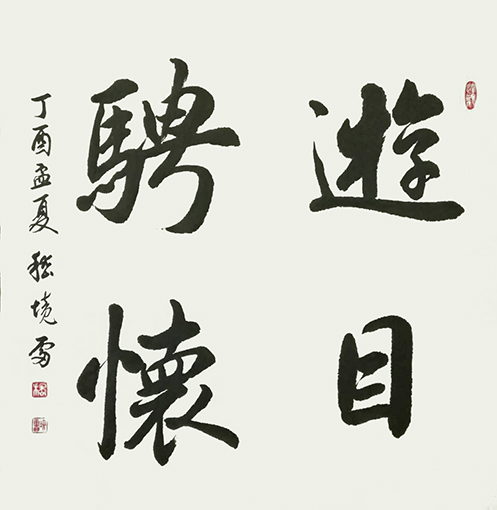 遊目
騁懷
丁酉孟夏 嵇境雪